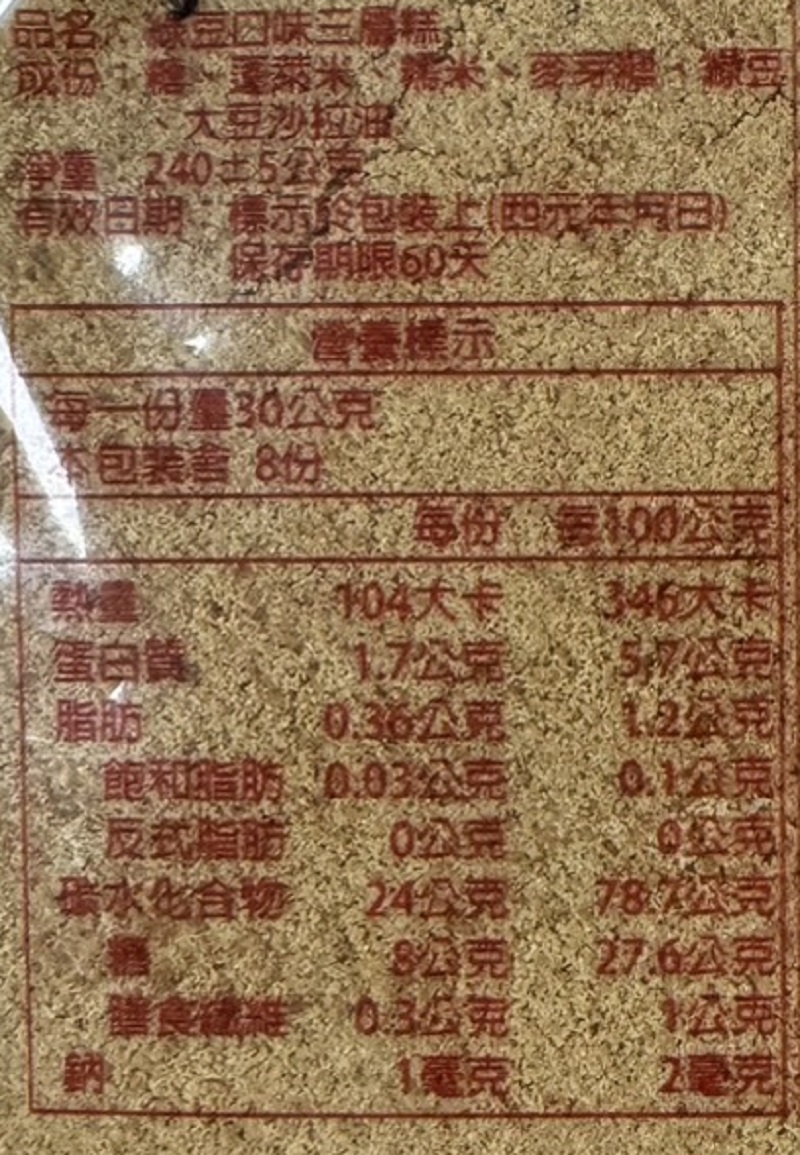 品名：綠豆口味三層糕
成份：糖、蓬萊米、糯米、麥芽糖、綠豆
、大豆沙拉油
淨重：240±5公克
有效日期：標示於包裝上(西元年月日)
保存期限60天
營養標示
每一份量30公克
本包裝含 8份
每份 每100公克
熱量 104大卡 346大卡
蛋白質 1.7公克 5.7公克
脂肪 0.36公克 1.2公克
飽和脂肪 0.03公克 0.1公克
反式脂肪 0公克 0公克
碳水化合物 24公克 78.7公克
糖 8公克 27.6公克
膳食纖維 0.3公克 1公克
鈉 1毫克 2毫克